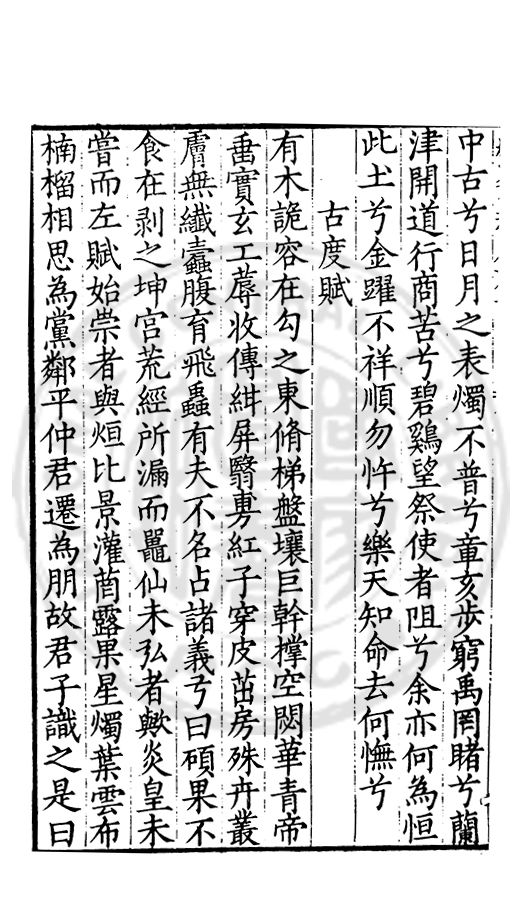 中古兮日月之表燭不普兮童亥步窮禹罔睹兮蘭
津開道行商苦兮碧鷄望祭使者阻兮余亦何為恒
此土兮金躍不祥順勿忤兮樂天知命去何憮兮
古度賦
有木詭容在勾之東脩梯盤壤巨幹撑空閟華青帝
畨實玄工蓐收傳紺屏翳旉紅子穿皮茁房殊卉叢
膚無纖蠹腹育飛蟲有夫不名占諸義兮曰碩果不
食在剥之坤宫荒經所漏而鼂仙未弘者歟炎皇未
嘗而左賦始崇者與烜比景灌莔露果星燭葉雲布
楠榴相思為黨鄰平仲君遷為朋故君子識之是曰